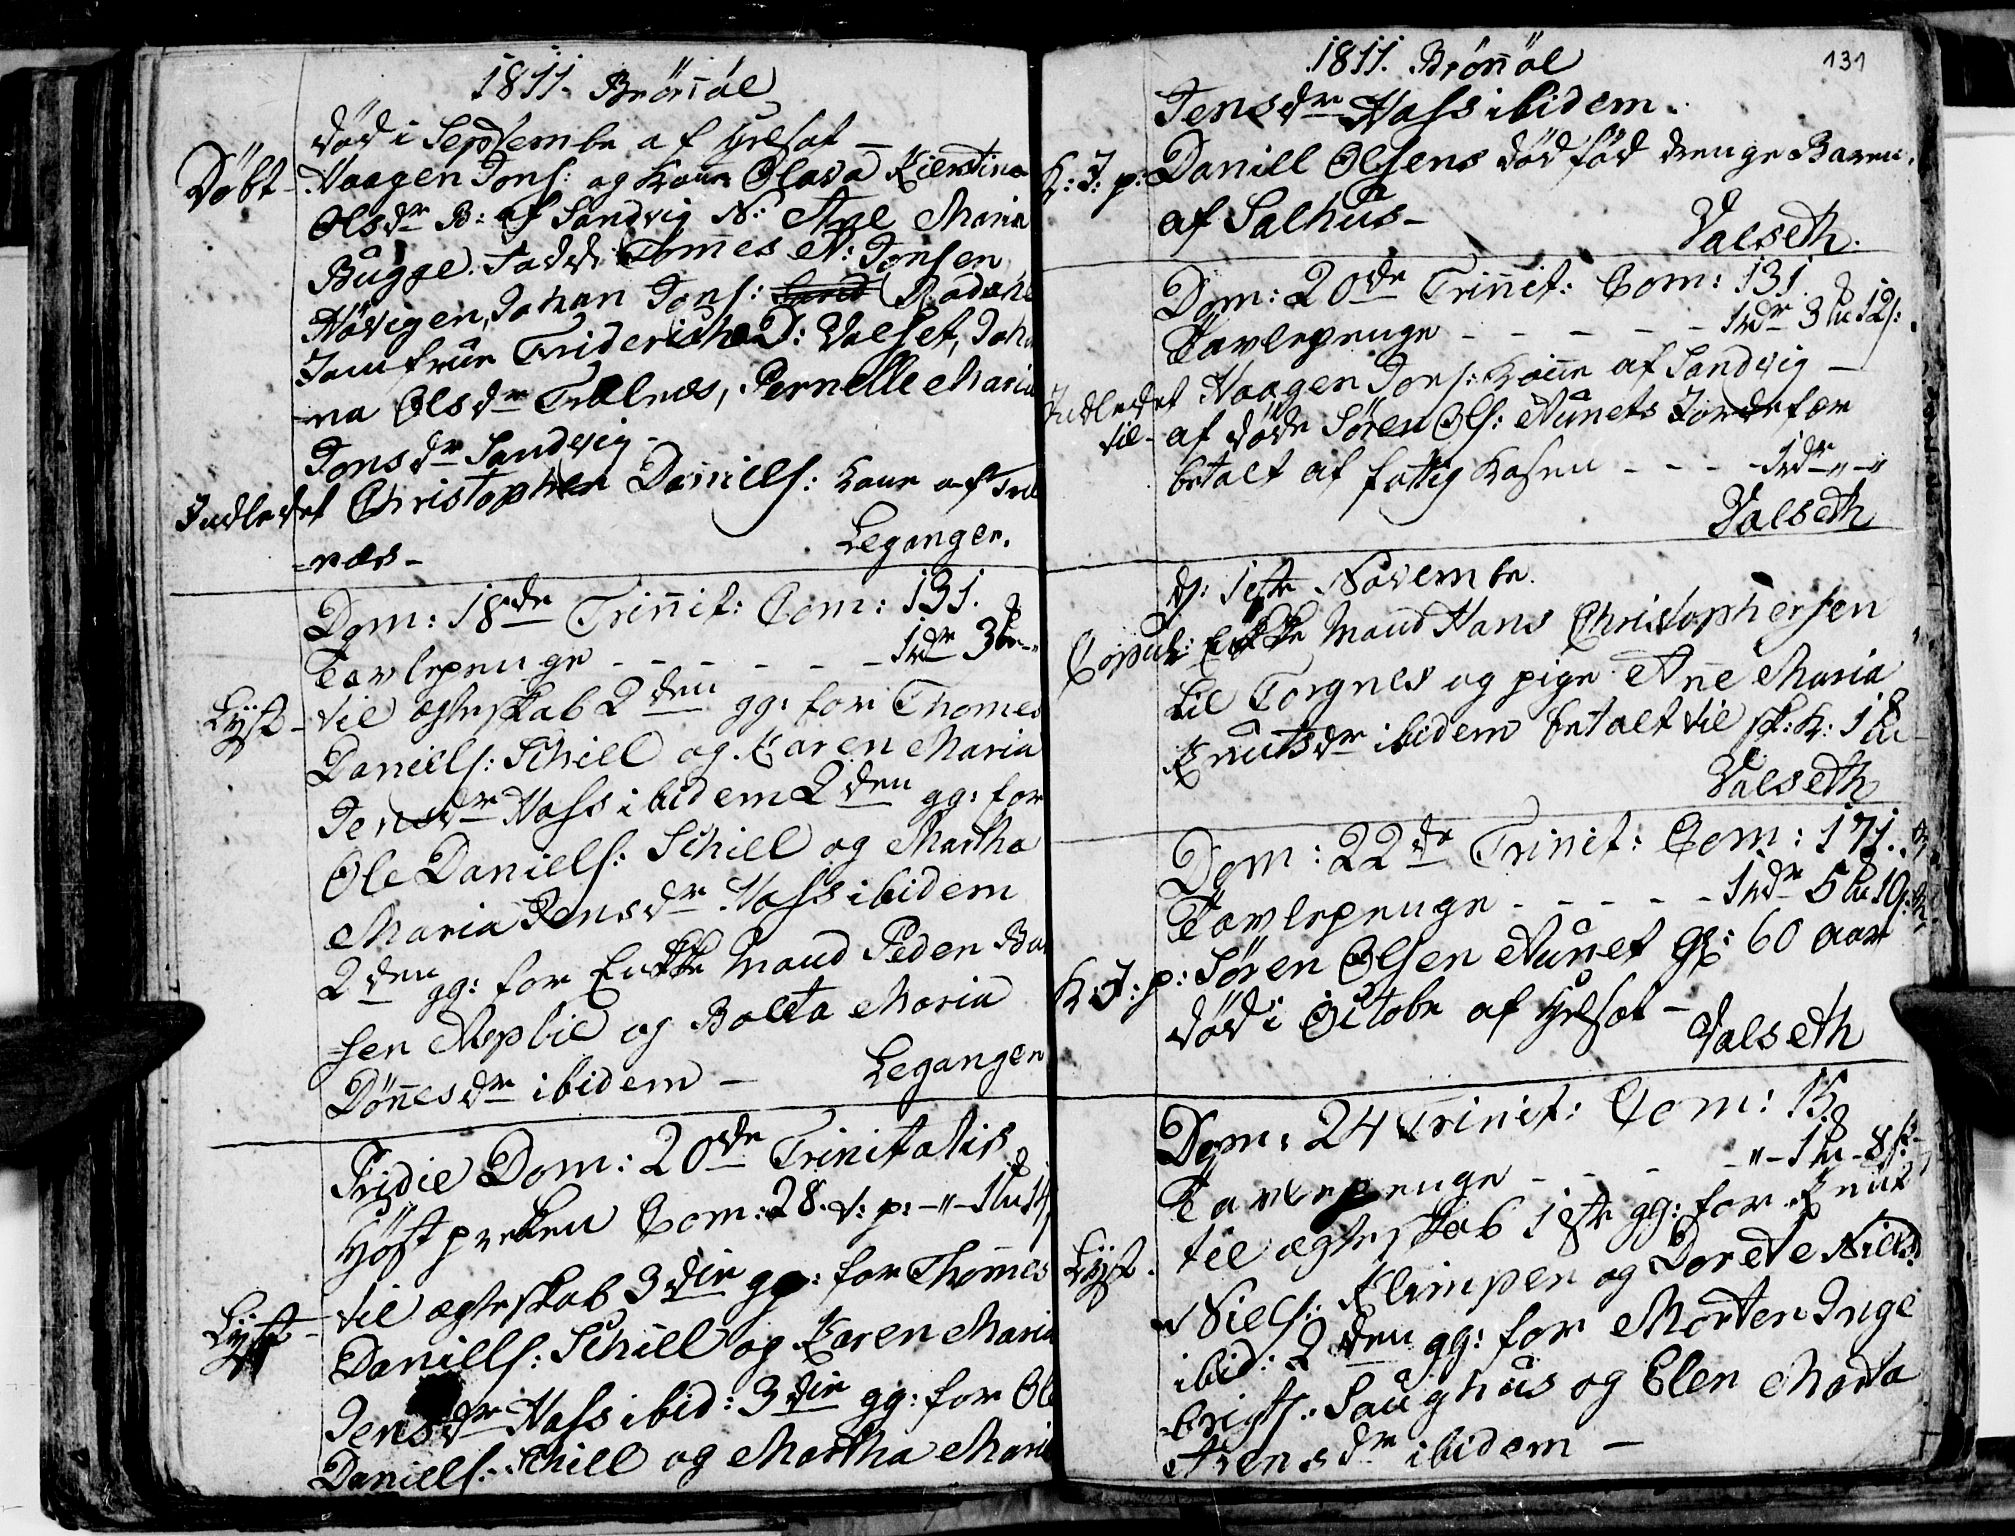 1811. Brönöe
död i Septembr af
Döbt - Haagen Jons: og Kone Olava Kierstina
Olsdr B: af Sandvig N: Ane Maria
Bugge. Fadd: Tomes A: Jonsen
Hövigen, Johan Jons: Rödahl
Jomfrue Fridericha D: Valset, Joha
na Olsdr Trælnæs, Pernelle Maria
Jonsdr Sandvig -
Indledet Christopher Daniels: Kone af Træl
=næs -
Legangen.
Dom: 18de Trinit: Com: 131.
Tavlepenge - - - - - - 1rdr 3
Lyst - til ægteskab 2den gg: for Thomes
Daniels: Schiell og Karen Maria
Jensdr Hass ibidem 2den gg: for
Ole Daniels: Schiell og Martha
Maria Jensdr Hass ibidem
2den gg: for Enkke Mand Peder
sen og Bolta Maria
Dönnesdr ibidem -
Legangen
Pridie Dom: 20de Trinitatis
Höstpreken Com: 28. t: p: -"- 1
Lyst - til ægteskab 3die gg: for Thomes
Daniells: Schiell og Karen Maria
Jensdr Hass ibid: 3die gg: for Ole
Daniells: Schiell og Martha Maria
131
1811. Brönöe
Jensdr Hass ibidem.
K: J: p: Daniel Olsens död föd drenge Baren
af Salhus -
Valseth.
Dom: 20de Trinnit: Com: 131.
Tavlepenge - - - - - 1rdr 3 12s:
Indledet Haagen Jons: Kone af Sandvig -
til - af döde Sören Ols: Nunets Jordefær
betalt af fattig Kasen - - - - 1rdr " - "
Valseth
d: 1ste Novembr.
Copul: Enkke Mand Hans Christophersen
til Torgnes og pige Ane Maria
Knutsdr ibidem betalt til sk: K: 1
Valseth
Dom: 22de Trinit: Com: 171.
Tavlepenge - - - - - 1rdr 5
K: J: p: Sören Olsen Nunet gl: 60 aar
död i Octobr af
Valseth
Dom: 24 Trinit: Com: 15.
Tavlepenge - - - - " - 1 - 8s:
Lyst. til ægteskab 1ste gg: for Knut
Niels: Klimpen og Dorete Nielsd
ibid: 2den gg: for Morten Inge
brigts: Saughus og Elen Marta
Arensdr ibidem -